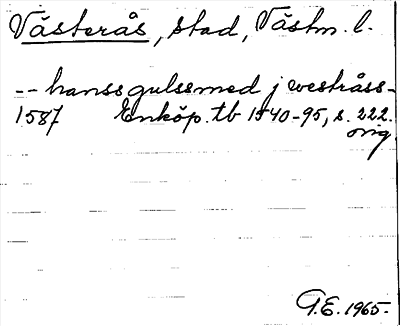 Västerås, stad, Västm. l.
-- hanss gulssmed j westråss -
1587 Enköp. tb 1540-95, s. 222.
orig.
G.E. 1965.